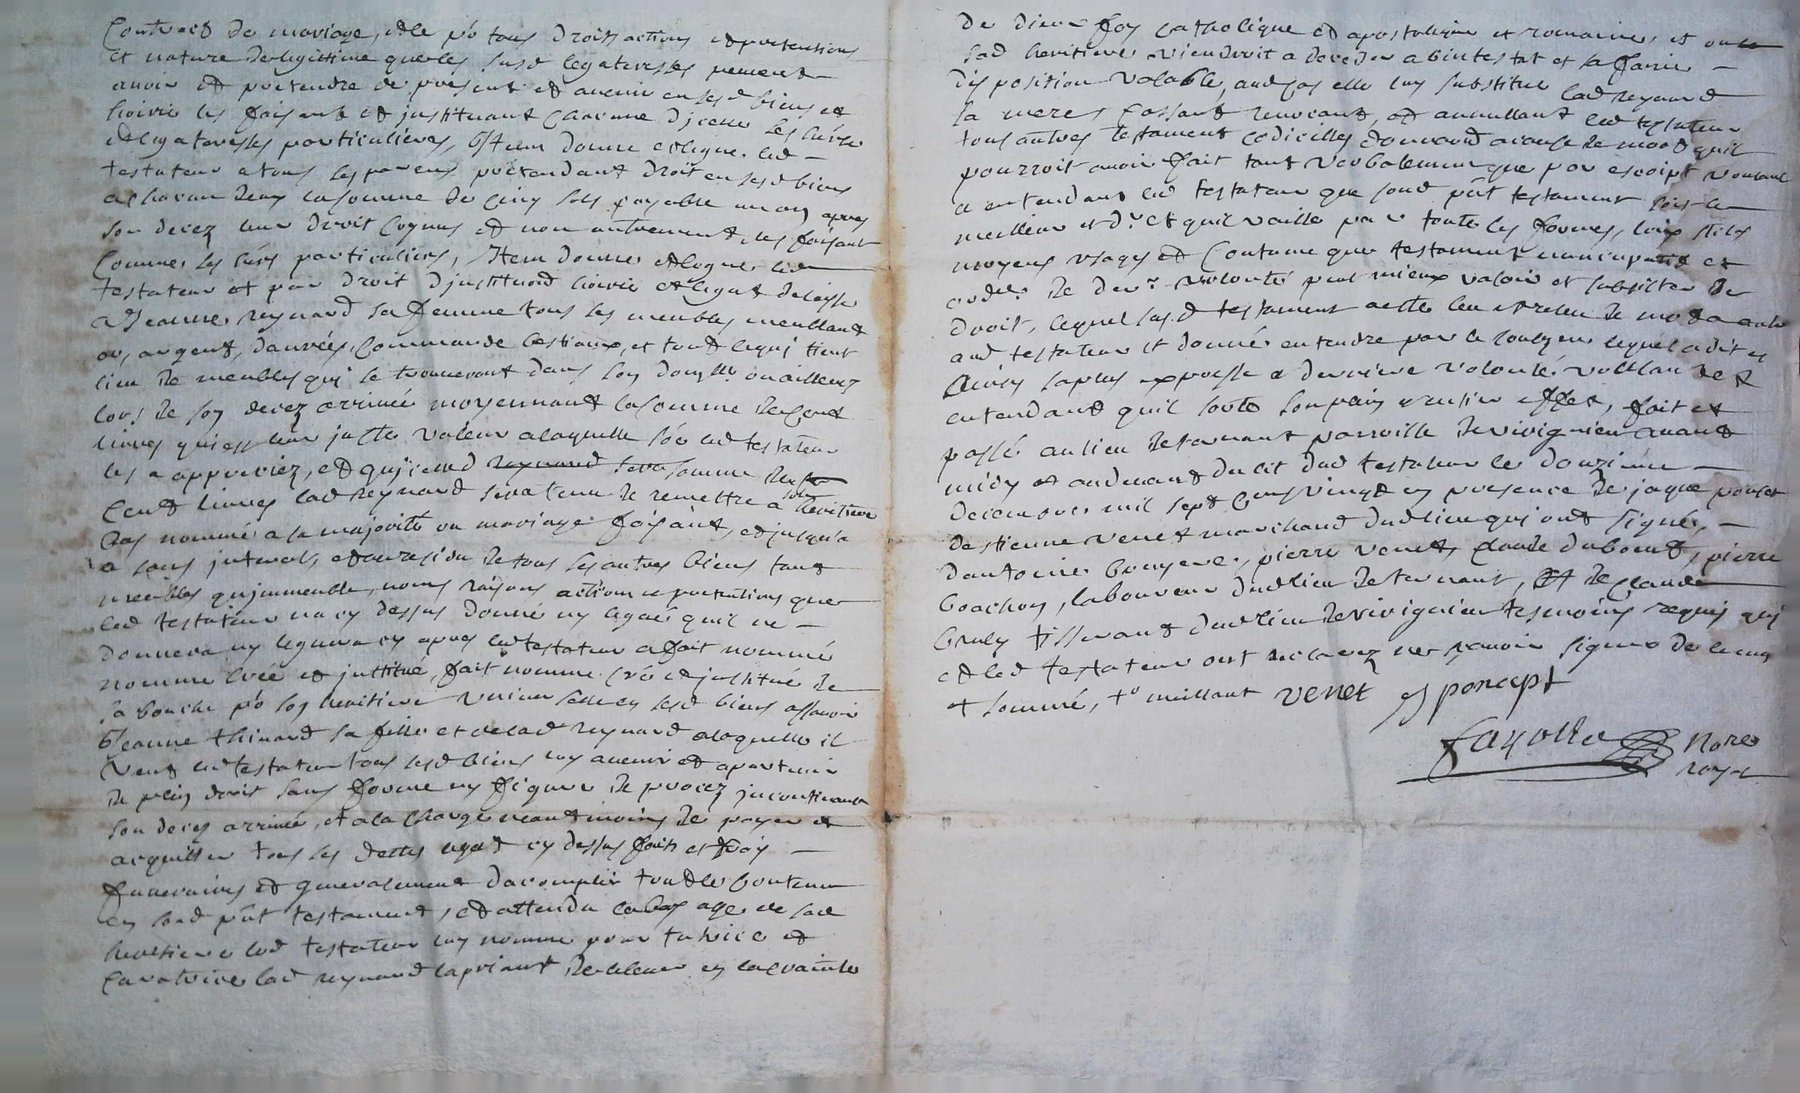 Contract de mariage, et le po tous droits actions et pretentions
et nature de legittime que les susd legateresses peuvent
avoir et pretendre de present et avenir en sesd biens et
hoirie les faisant et instituant chacune d'jcelle ses heres
et legateresses particulieres, Item donne et legue led
testateur a tous ses parens pretendant droit en sesd biens
a chacun deux la somme de cinq sols payable un an apres
son decez leur droit cognus et non autrement, les faisant
comme ses hers particuliers, Item donne et legue led
testateur et par droit d'jnstitution hoirie et legat delaisse
a Jeanne reynard sa femme tous ses meubles meublant
or, argent, danrées, commande bestiaux, et tout ce qui tient
lieu de meubles qui se trouveront dans son domlle ou ailleurs
lors de son decez arrivé moyennant la somme de cent
livres qui est leur juste valeur a laquelle led testateur
les a appreciez, et qu'jcelled reynard sera somme de
cent livres lad Reynard sera tenue de remettre a son heritiere
bas nommé a sa majorité ou mariage faisant, et jusqu'a
sans jnterest, et au residu de tous ses autres biens tant
meubles qu'jmmeuble, noms raisons actions et pretentions que
led testateur na cy dessus donné ny legué quil ne
donnera ny leguera cy apres led testateur a fait nommé
nommé créé et jnstitué, fait nomme créé et jnstitué de
sa bouche po son heritiere universelle en sesd biens assavoir
Jeanne thinard sa fille et de lad reynard a laquelle il
veut led testateur tous sesd biens luy avenir et apartenir
de plein droit sans forme ny figure de procez jncontinant
son deces arrivé, et a la charge neantmoins de payer et
acquitter tous les dettes legat cy dessus faits et frais
funeraires et generalement dacomplir tout le contenu
en sond pnt testament, et attendu le bas age de sad
heritiere led testateur luy nomme pour tutrice et
curatrice lad reynard la priant de lelever en la crainte
de dieu foy catholique et apostolique et romaine, et ou
sad heritiere viendroit a deceder abintestat et sans faire
disposition valable, aud cas elle luy substitue lad reynard
sa mere, cassant revocant, et annullant led testateur
tous autres testament codicilles donnation a cause de mort quil
pourroit avoir fait tant verbalement que par escript voulant
et entendant led testateur que sond pnt testament soit le
meilleur et dr et quil vaille par toutes les formes, loix stiles
moyens usages et coutume que testament nuncupatif et
ordre de derre volonté peut mieux valoir et subsister de
droit, lequel susd testament a esté leu et releu de mot a autre
aud testateur et donné entendre par le soubzne lequel a dit
ainsy sa plus expresse et derniere volonté voullant et
entendant quil sorte son plein et entier effet, fait et
passé au lieu de ternant parroisse de virigneu avant
midy et au devant du lit dud testateur le douzieme
decembre mil sept cens vingt en presence de jaque poncet
destienne venet marchand dud lieu qui ont signé,
dantoine bruyere, pierre venet, claude duboeuf, pierre
coachon, laboureur dud lieu de ternant, et de claude
bruley tisserant dud lieu de virigneu tesmoins requis qui
et led testateur ont declarez ne sçavoir signer de ce enq
et sommé, to meillant venet J poncept
fayolle Nore
royal